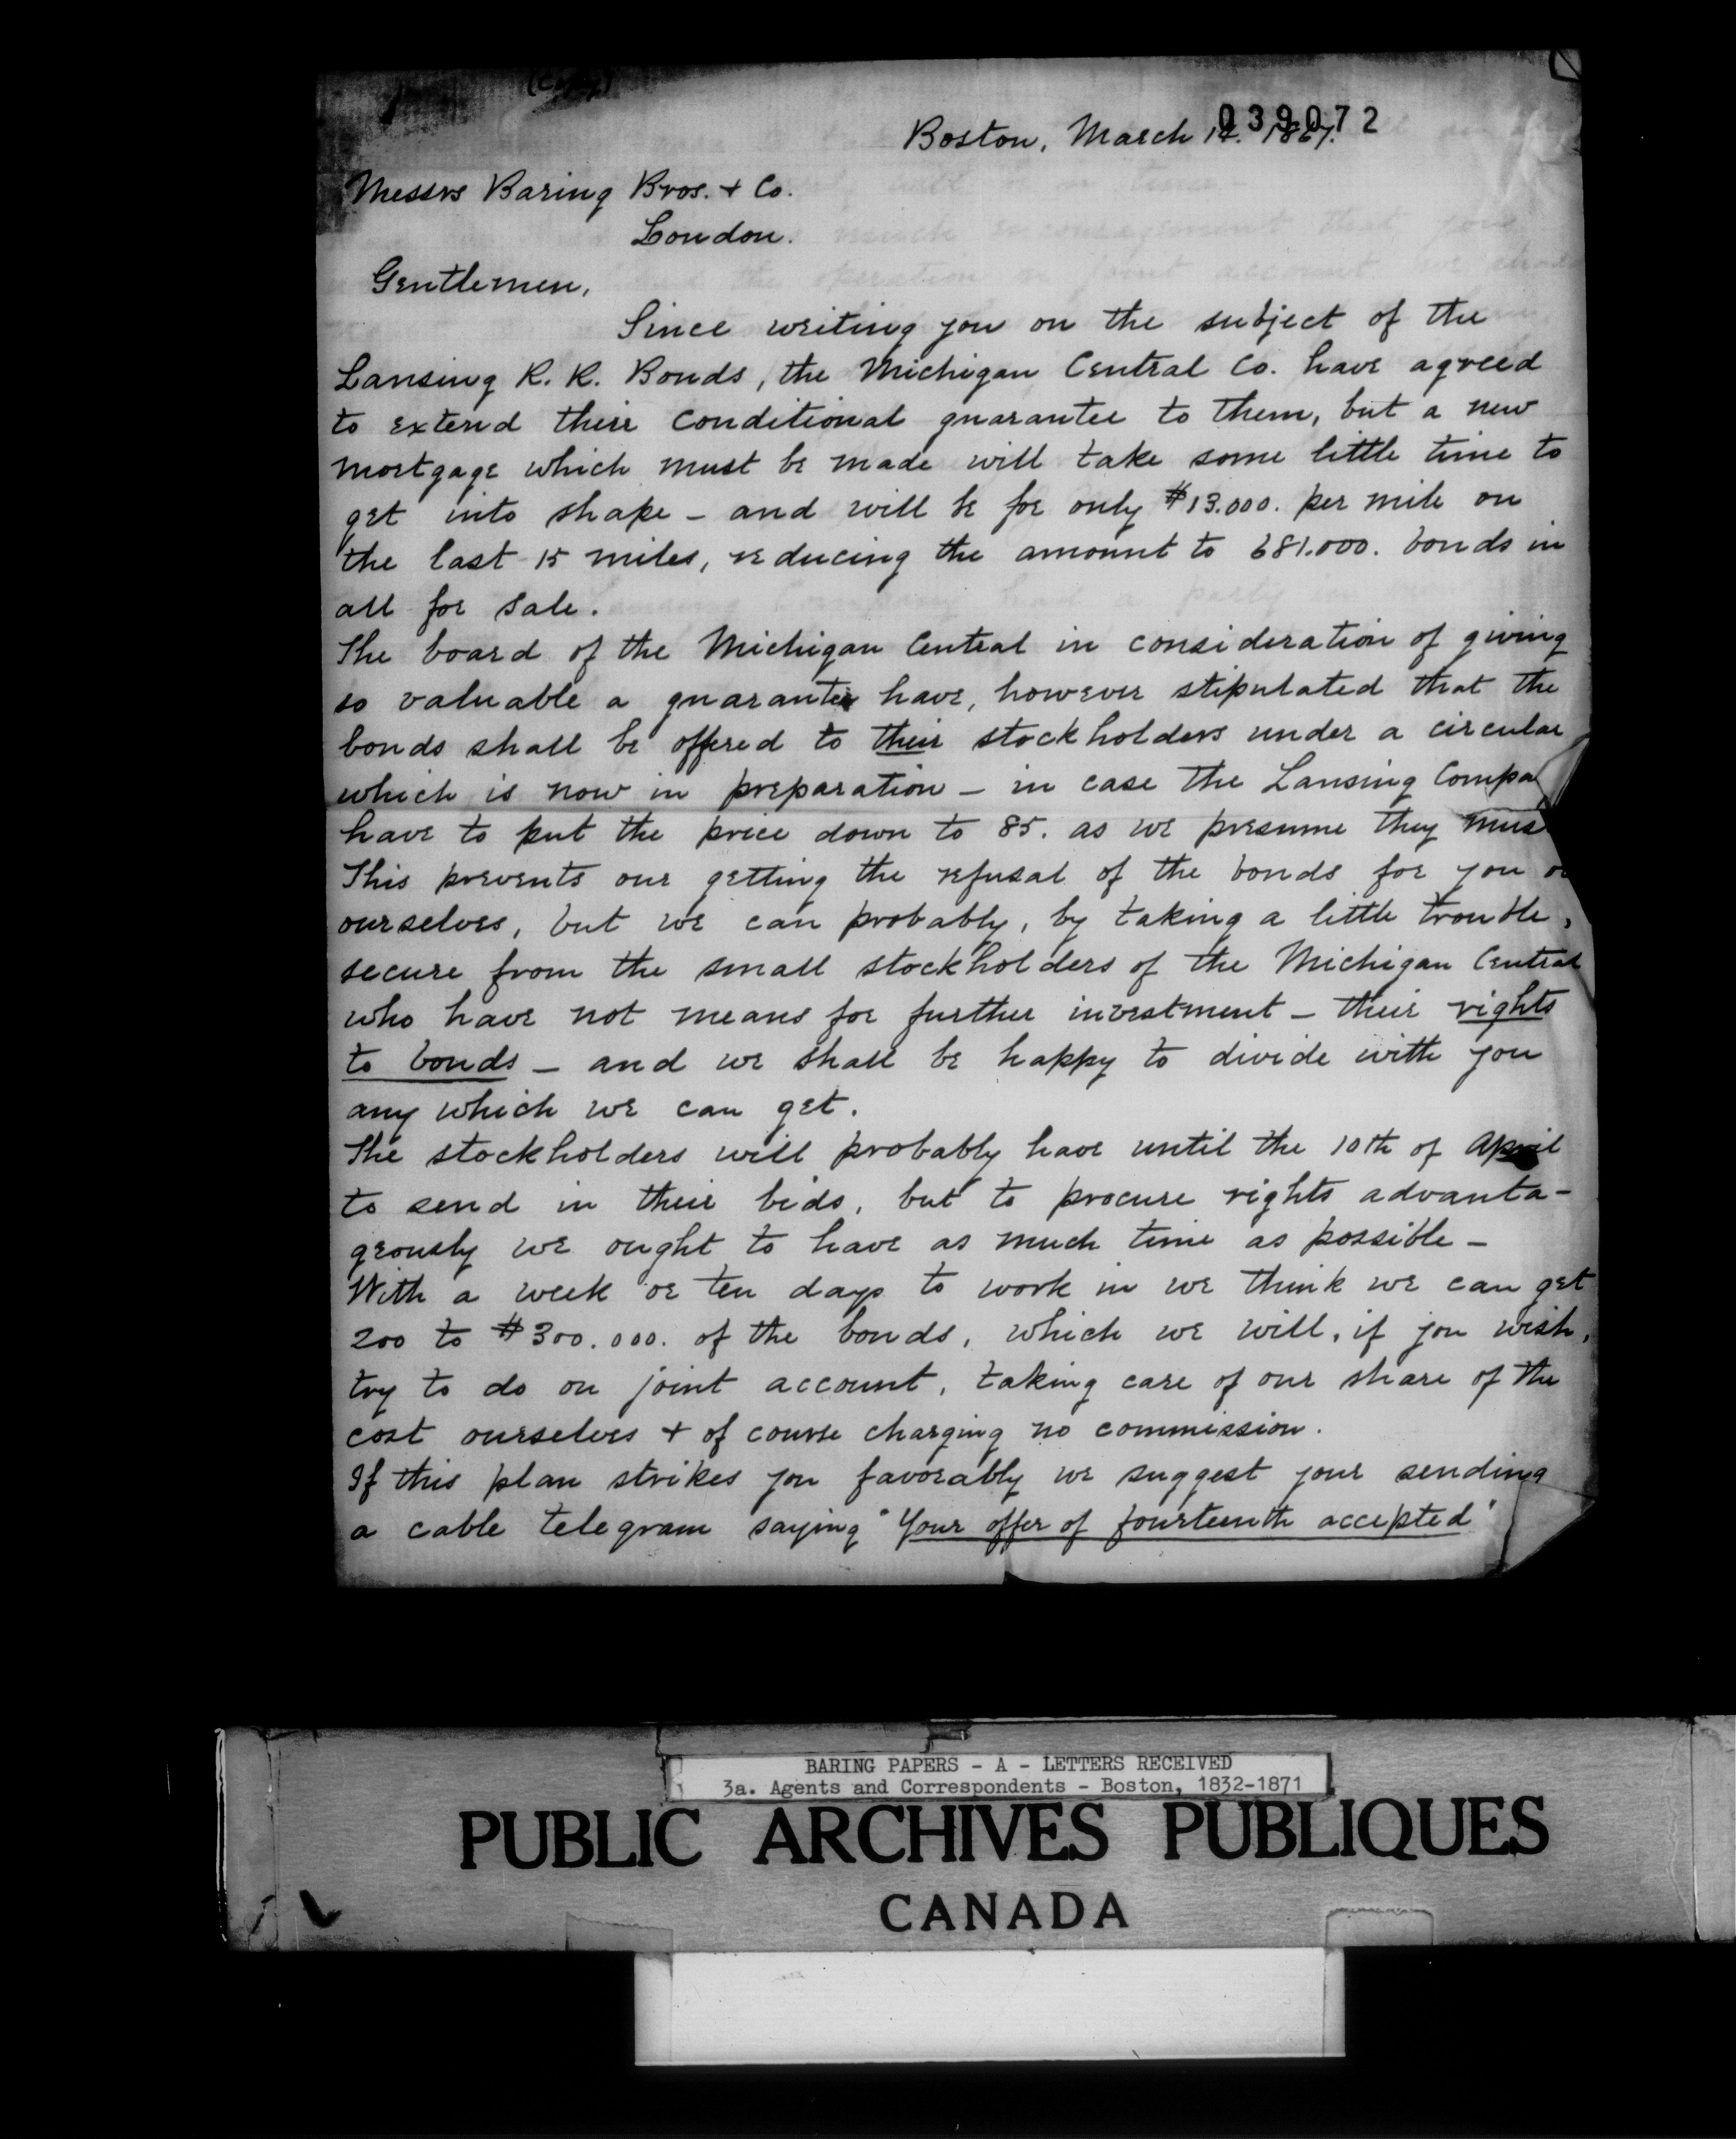 (Copy)
039072
Boston, March 14. 1867.
Messrs Baring Bros. + Co.
London.
Gentlemen,
Since writing you on the subject of the
Lansing R. R. Bonds, the Michigan Central Co. have agreed
to extend their conditional guarantee to them, but a new
mortgage which must be made will take some little time to
get into shape – and will be for only $13.000. per mile on
the last 15 miles, reducing the amount to 681.000. bonds in
all for sale.
The board of the Michigan Central in consideration of giving
so valuable a guarantee have, however stipulated that the
bonds shall be offered to their stockholders under a circular
which is now in preparation – in case the Lansing Compa
have to put the price down to 85. as we presume they mus
This prevents our getting the refusal of the bonds for you o
ourselves, but we can probably, by taking a little trouble,
secure from the small stockholders of the Michigan Central
who have not means for further investment – their rights
to bonds – and we shall be happy to divide with you
any which we can get.
The stockholders will probably have until the 10th of April
to send in their bids, but to procure rights advanta-
geously we ought to have as much time as possible –
With a week or ten days to work in we think we can get
200 to $300.000. of the bonds, which we will, if you wish,
try to do on joint account, taking care of our share of the
cost ourselves + of course charging no commission.
If this plan strikes you favorably we suggest your sending
a cable telegram saying "Your offer of fourteenth accepted"
BARING PAPERS - A - LETTERS RECEIVED
3a. Agents and Correspondents - Boston, 1832-1871
PUBLIC ARCHIVES PUBLIQUES
CANADA